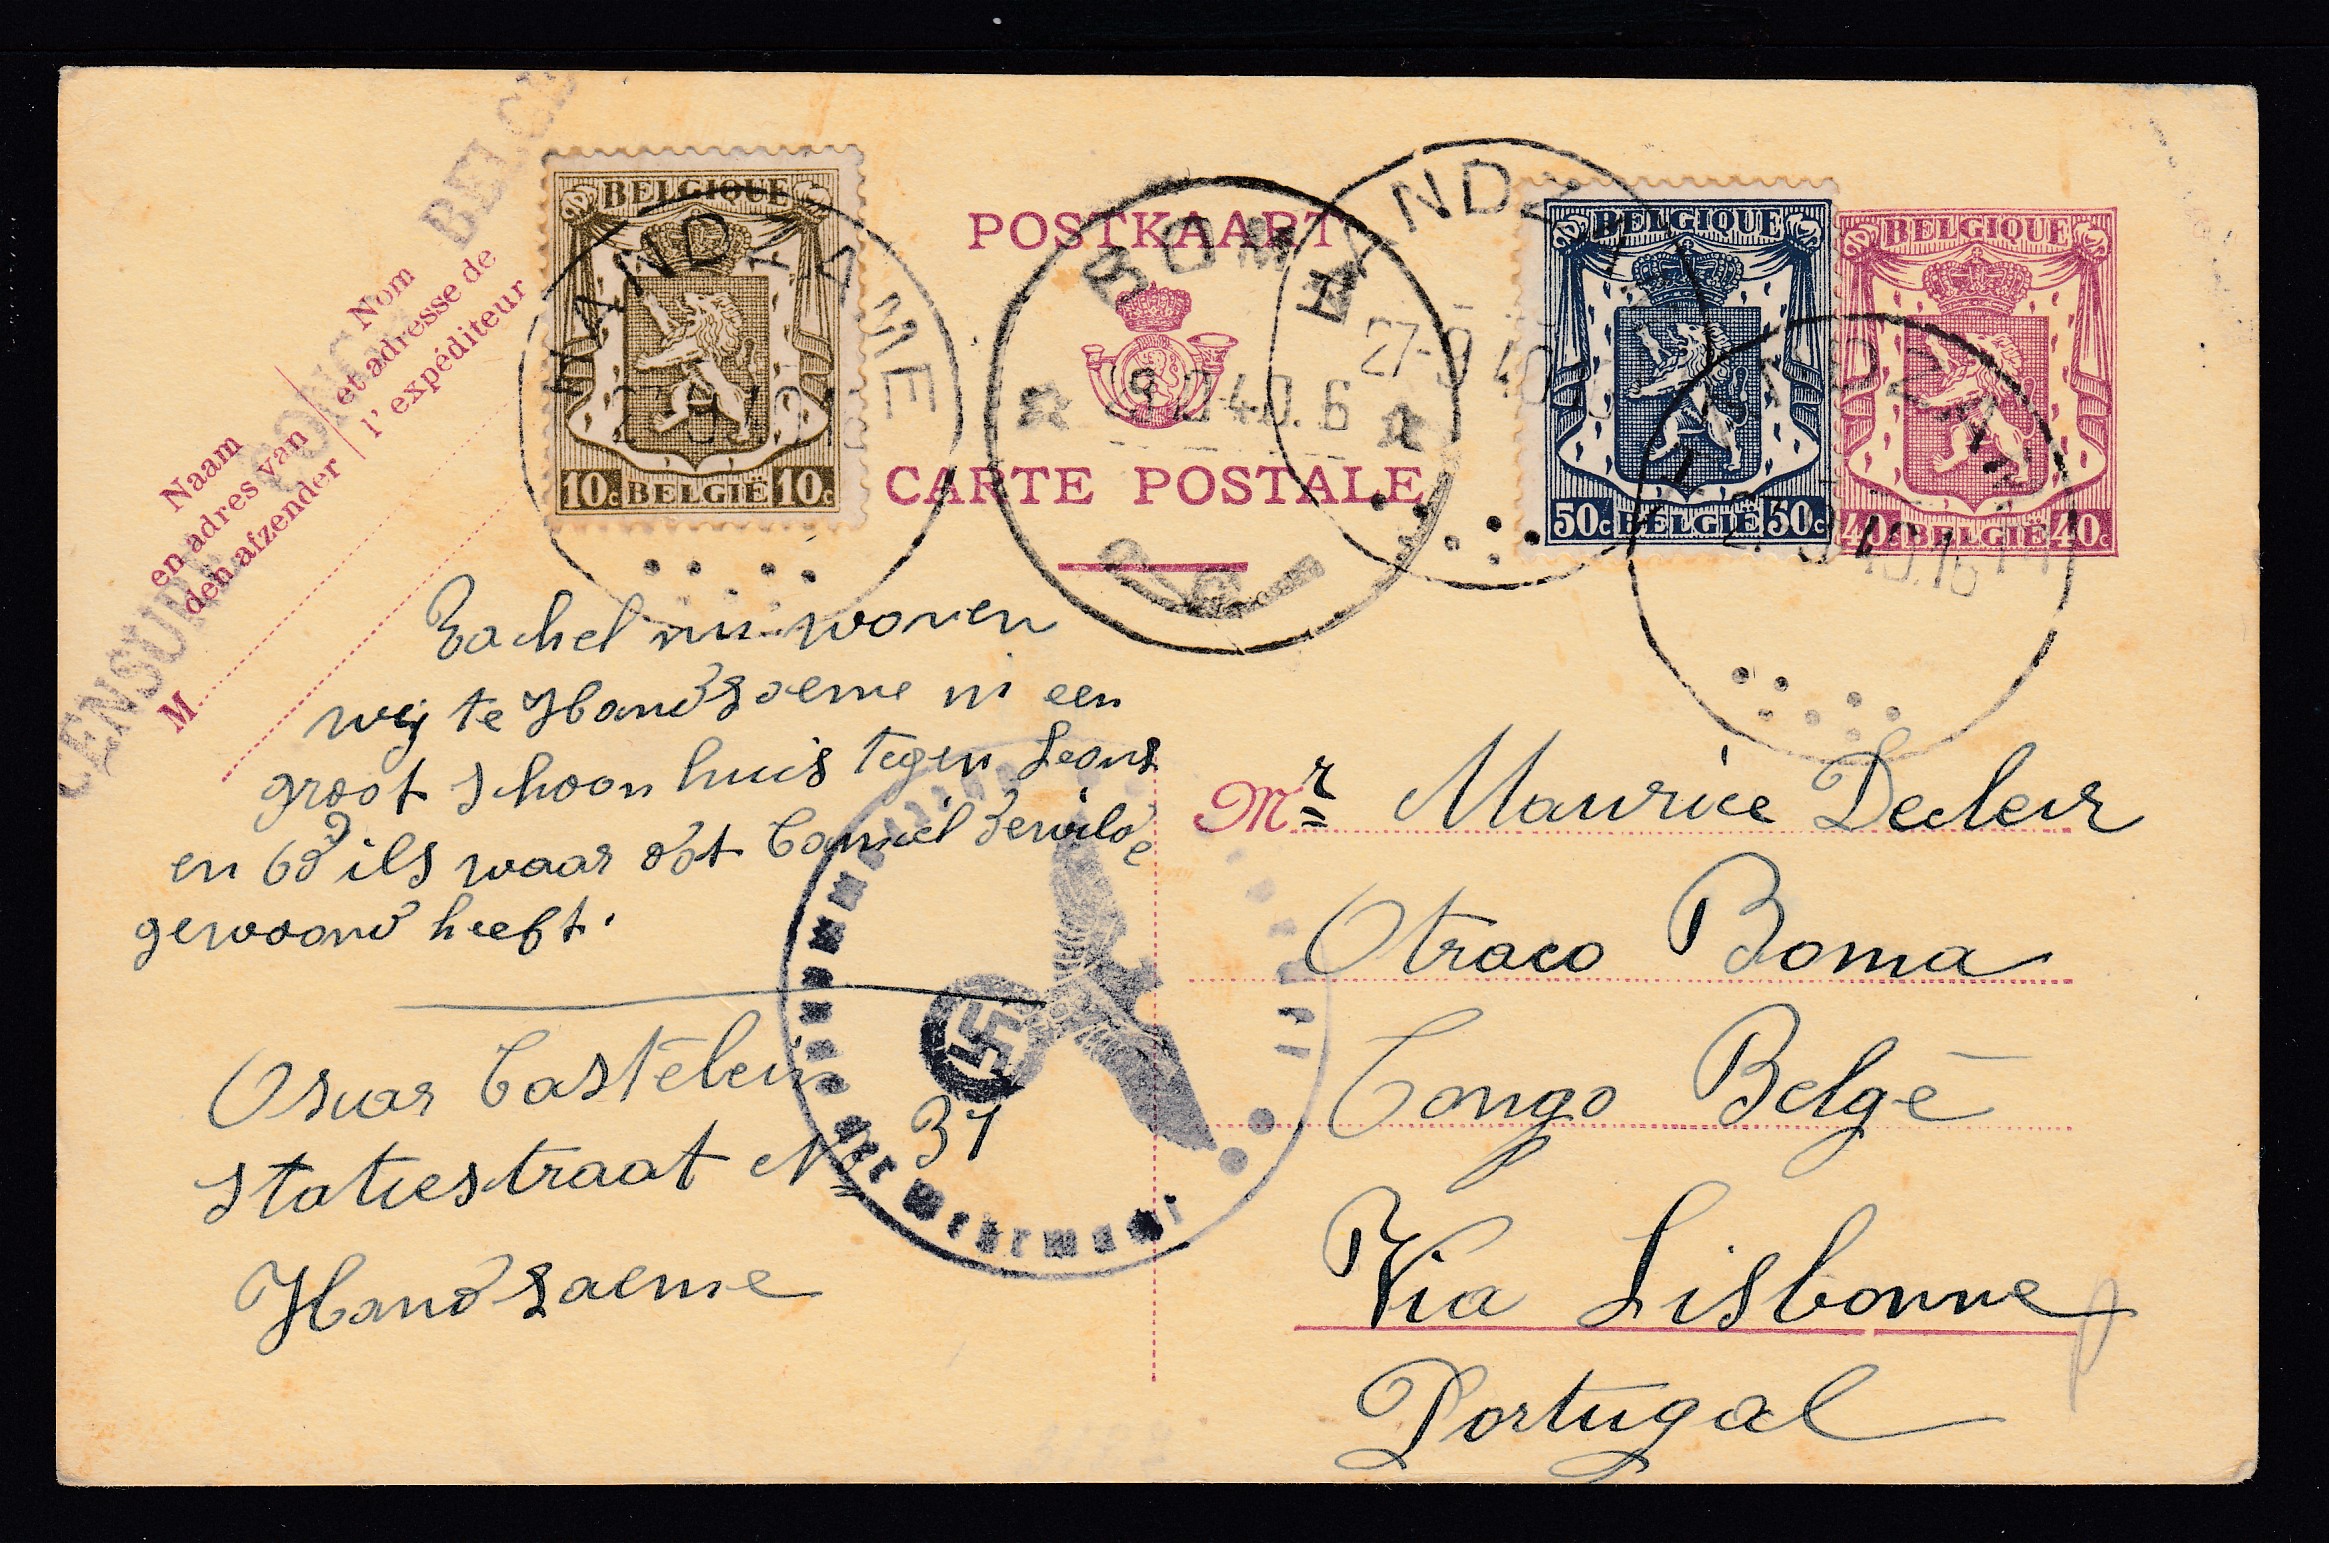 CENSURE CONGO BELGE
Naam
en adres van
den afzender
Nom
et adresse de
l'expéditeur
M
BELGIQUE
10c BELGIË 10c
HANDZAME
POSTKAART
CARTE POSTALE
BOMA
40.6
HANDZ
27-9 40
BELGIQUE
50c BELGIË 50c
BELGIQUE
40c BELGIË 40c
40.16
Rachel nu wonen
wij te Handzaeme in een
groot schoon huis tegen Leons
en ils waar dat Camiel Dewilde
gewoond heeft.
Oscar Castelein
statiestraat No 31
Handzaeme
der Wehrmacht
Mr Maurice Decleir
Otraco Boma
Congo Belge
Via Lisbonne
Portugal